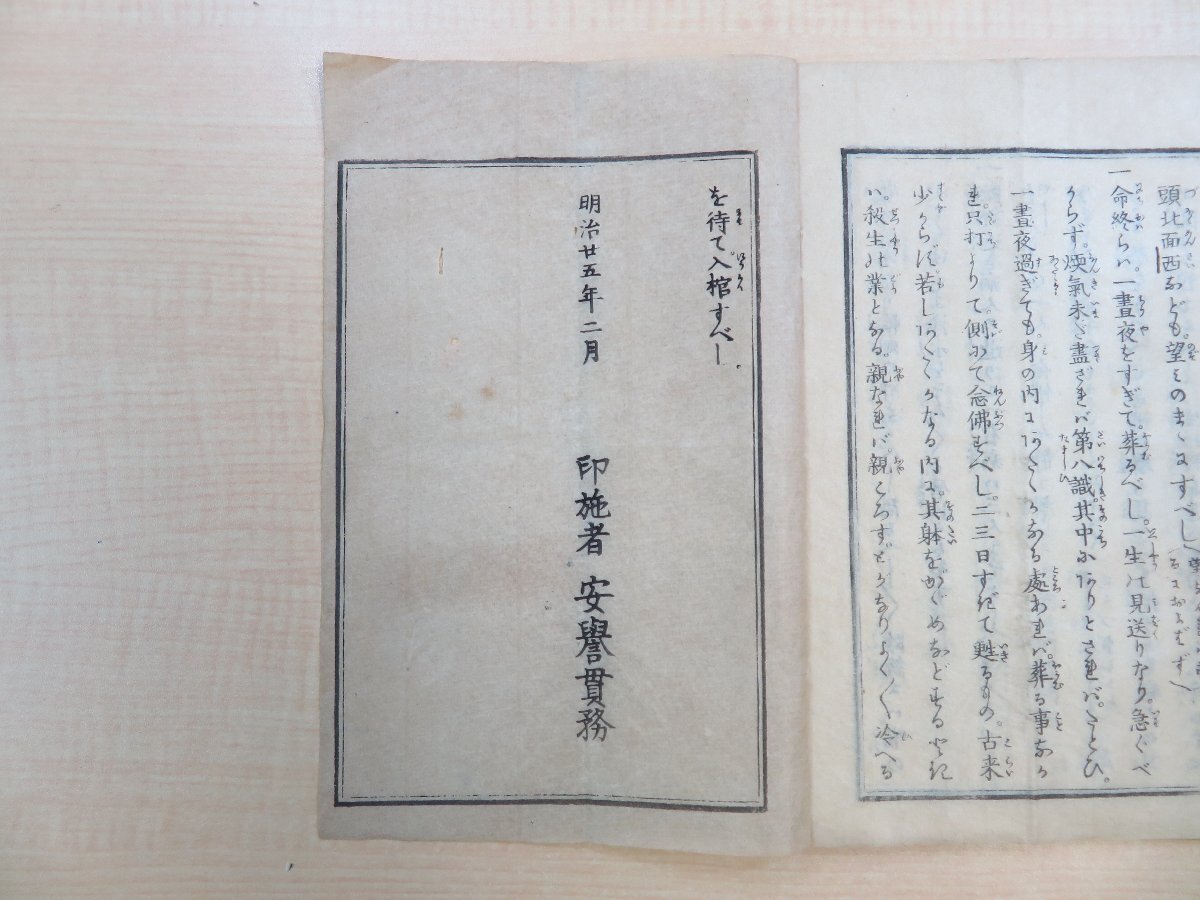 頭北面西なども。望みのまゝにすべし
一命終らば。一晝夜をすぎて。葬るべし。一生の見送りなり。急ぐべ
からず。煗氣未だ盡ざれば第八識。其中にありとされば。たとひ。
一晝夜過ぎても。身の内にあたゝかなる處あれば。葬る事なか
れ。只打よりて側にて念佛すべし。二三日すぎて甦るもの。古来
少からず若しあたゝかなる内に。其躰をかゞめなどする時
は。殺生の業となる。親なれば。親ころす。とがなりよく〳〵冷へる
を待て。入棺すべし。
明治廿五年二月
印施者 安譽貫務